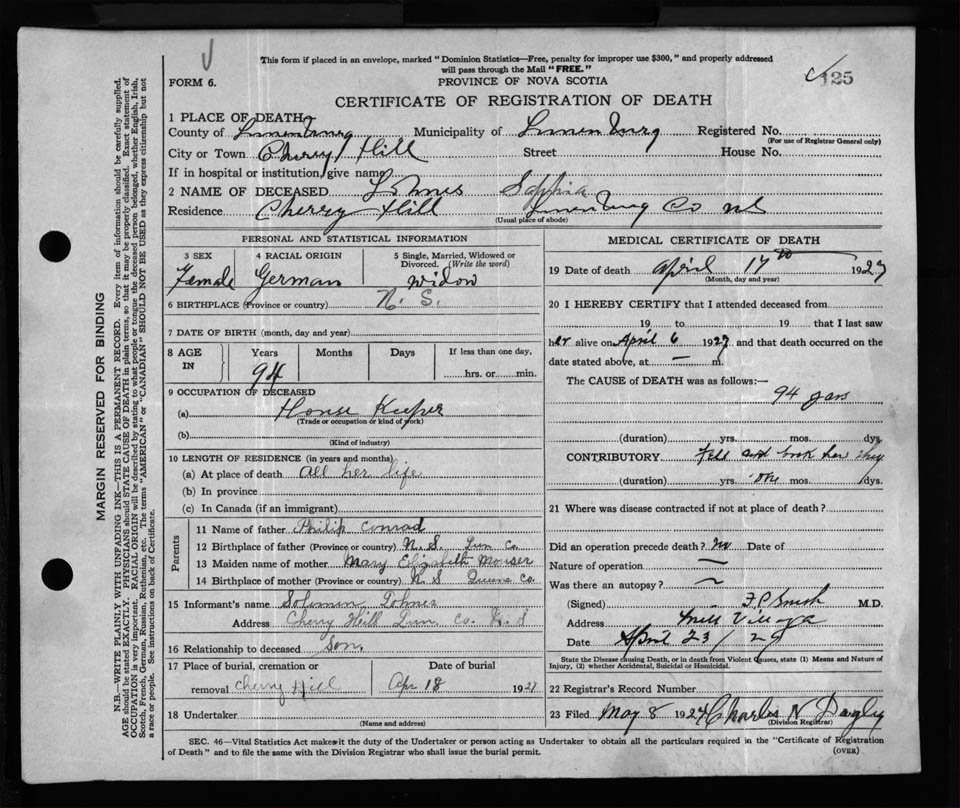 This form if placed in an envelope, marked "Dominion Statistics—Free, penalty for improper use $300," and properly addressed
will pass through the Mail "FREE."
FORM 6.
PROVINCE OF NOVA SCOTIA
125
CERTIFICATE OF REGISTRATION OF DEATH
MARGIN RESERVED FOR BINDING
N.B.—WRITE PLAINLY WITH UNFADING INK—THIS IS A PERMANENT RECORD. Every item of information should be carefully supplied.
AGE should be stated EXACTLY. PHYSICIANS should STATE CAUSE OF DEATH in plain terms, so that it may be properly classified. Exact statement of
OCCUPATION is very important. RACIAL ORIGIN will be described by stating to what people or tongue the deceased person belonged, whether English, Irish,
Scotch, French, German, Russian, Ruthenian, etc. The terms "AMERICAN" or "CANADIAN" SHOULD NOT BE USED as they express citizenship but not
a race or people. See instructions on back of Certificate.
1 PLACE OF DEATH
County of Lunenburg Municipality of Lunenburg Registered No.
(For use of Registrar General only)
City or Town Cherry Hill Street House No.
If in hospital or institution, give name
2 NAME OF DECEASED Sophia
Residence Cherry Hill Lunenburg Co NS
(Usual place of abode)
PERSONAL AND STATISTICAL INFORMATION
3 SEX
Female
4 RACIAL ORIGIN
German
5 Single, Married, Widowed or
Divorced. (Write the word)
Widow
6 BIRTHPLACE (Province or country) N. S.
7 DATE OF BIRTH (month, day and year)
8 AGE IN Years Months Days If less than one day,
94 hrs. or min.
9 OCCUPATION OF DECEASED
(a) House Keeper
(Trade or occupation or kind of work)
(b)
(Kind of industry)
10 LENGTH OF RESIDENCE (in years and months)
(a) At place of death all her life
(b) In province
(c) In Canada (if an immigrant)
Parents
11 Name of father Philip Conrad
12 Birthplace of father (Province or country) N. S. Lun Co.
13 Maiden name of mother Mary Elizabeth Mouser
14 Birthplace of mother (Province or country) N S Queens Co.
15 Informant's name Solomon
Address Cherry Hill Lun. Co. N. S
16 Relationship to deceased Son
17 Place of burial, cremation or Date of burial
removal Cherry Hill Apr 18 192
18 Undertaker
(Name and address)
MEDICAL CERTIFICATE OF DEATH
19 Date of death April 17th 192
(Month, day and year)
20 I HEREBY CERTIFY that I attended deceased from
19 to 19 that I last saw
her alive on April 6 192 and that death occurred on the
date stated above, at — m.
The CAUSE of DEATH was as follows:—
94 years
(duration) yrs. mos. dys.
CONTRIBUTORY Fell and broke her
(duration) yrs. one mos. dys.
21 Where was disease contracted if not at place of death?
Did an operation precede death? no Date of
Nature of operation —
Was there an autopsy? ~
(Signed) F.P. Smith M.D.
Address Mill Village
Date April 23 / 29
State the Disease causing Death, or in death from Violent Causes, state (1) Means and Nature of
Injury, (2) whether Accidental, Suicidal or Homicidal.
22 Registrar's Record Number
23 Filed May 8 192 Charles N
(Division Registrar)
SEC. 46—Vital Statistics Act makes it the duty of the Undertaker or person acting as Undertaker to obtain all the particulars required in the "Certificate of Registration
of Death" and to file the same with the Division Registrar who shall issue the burial permit.
(OVER)